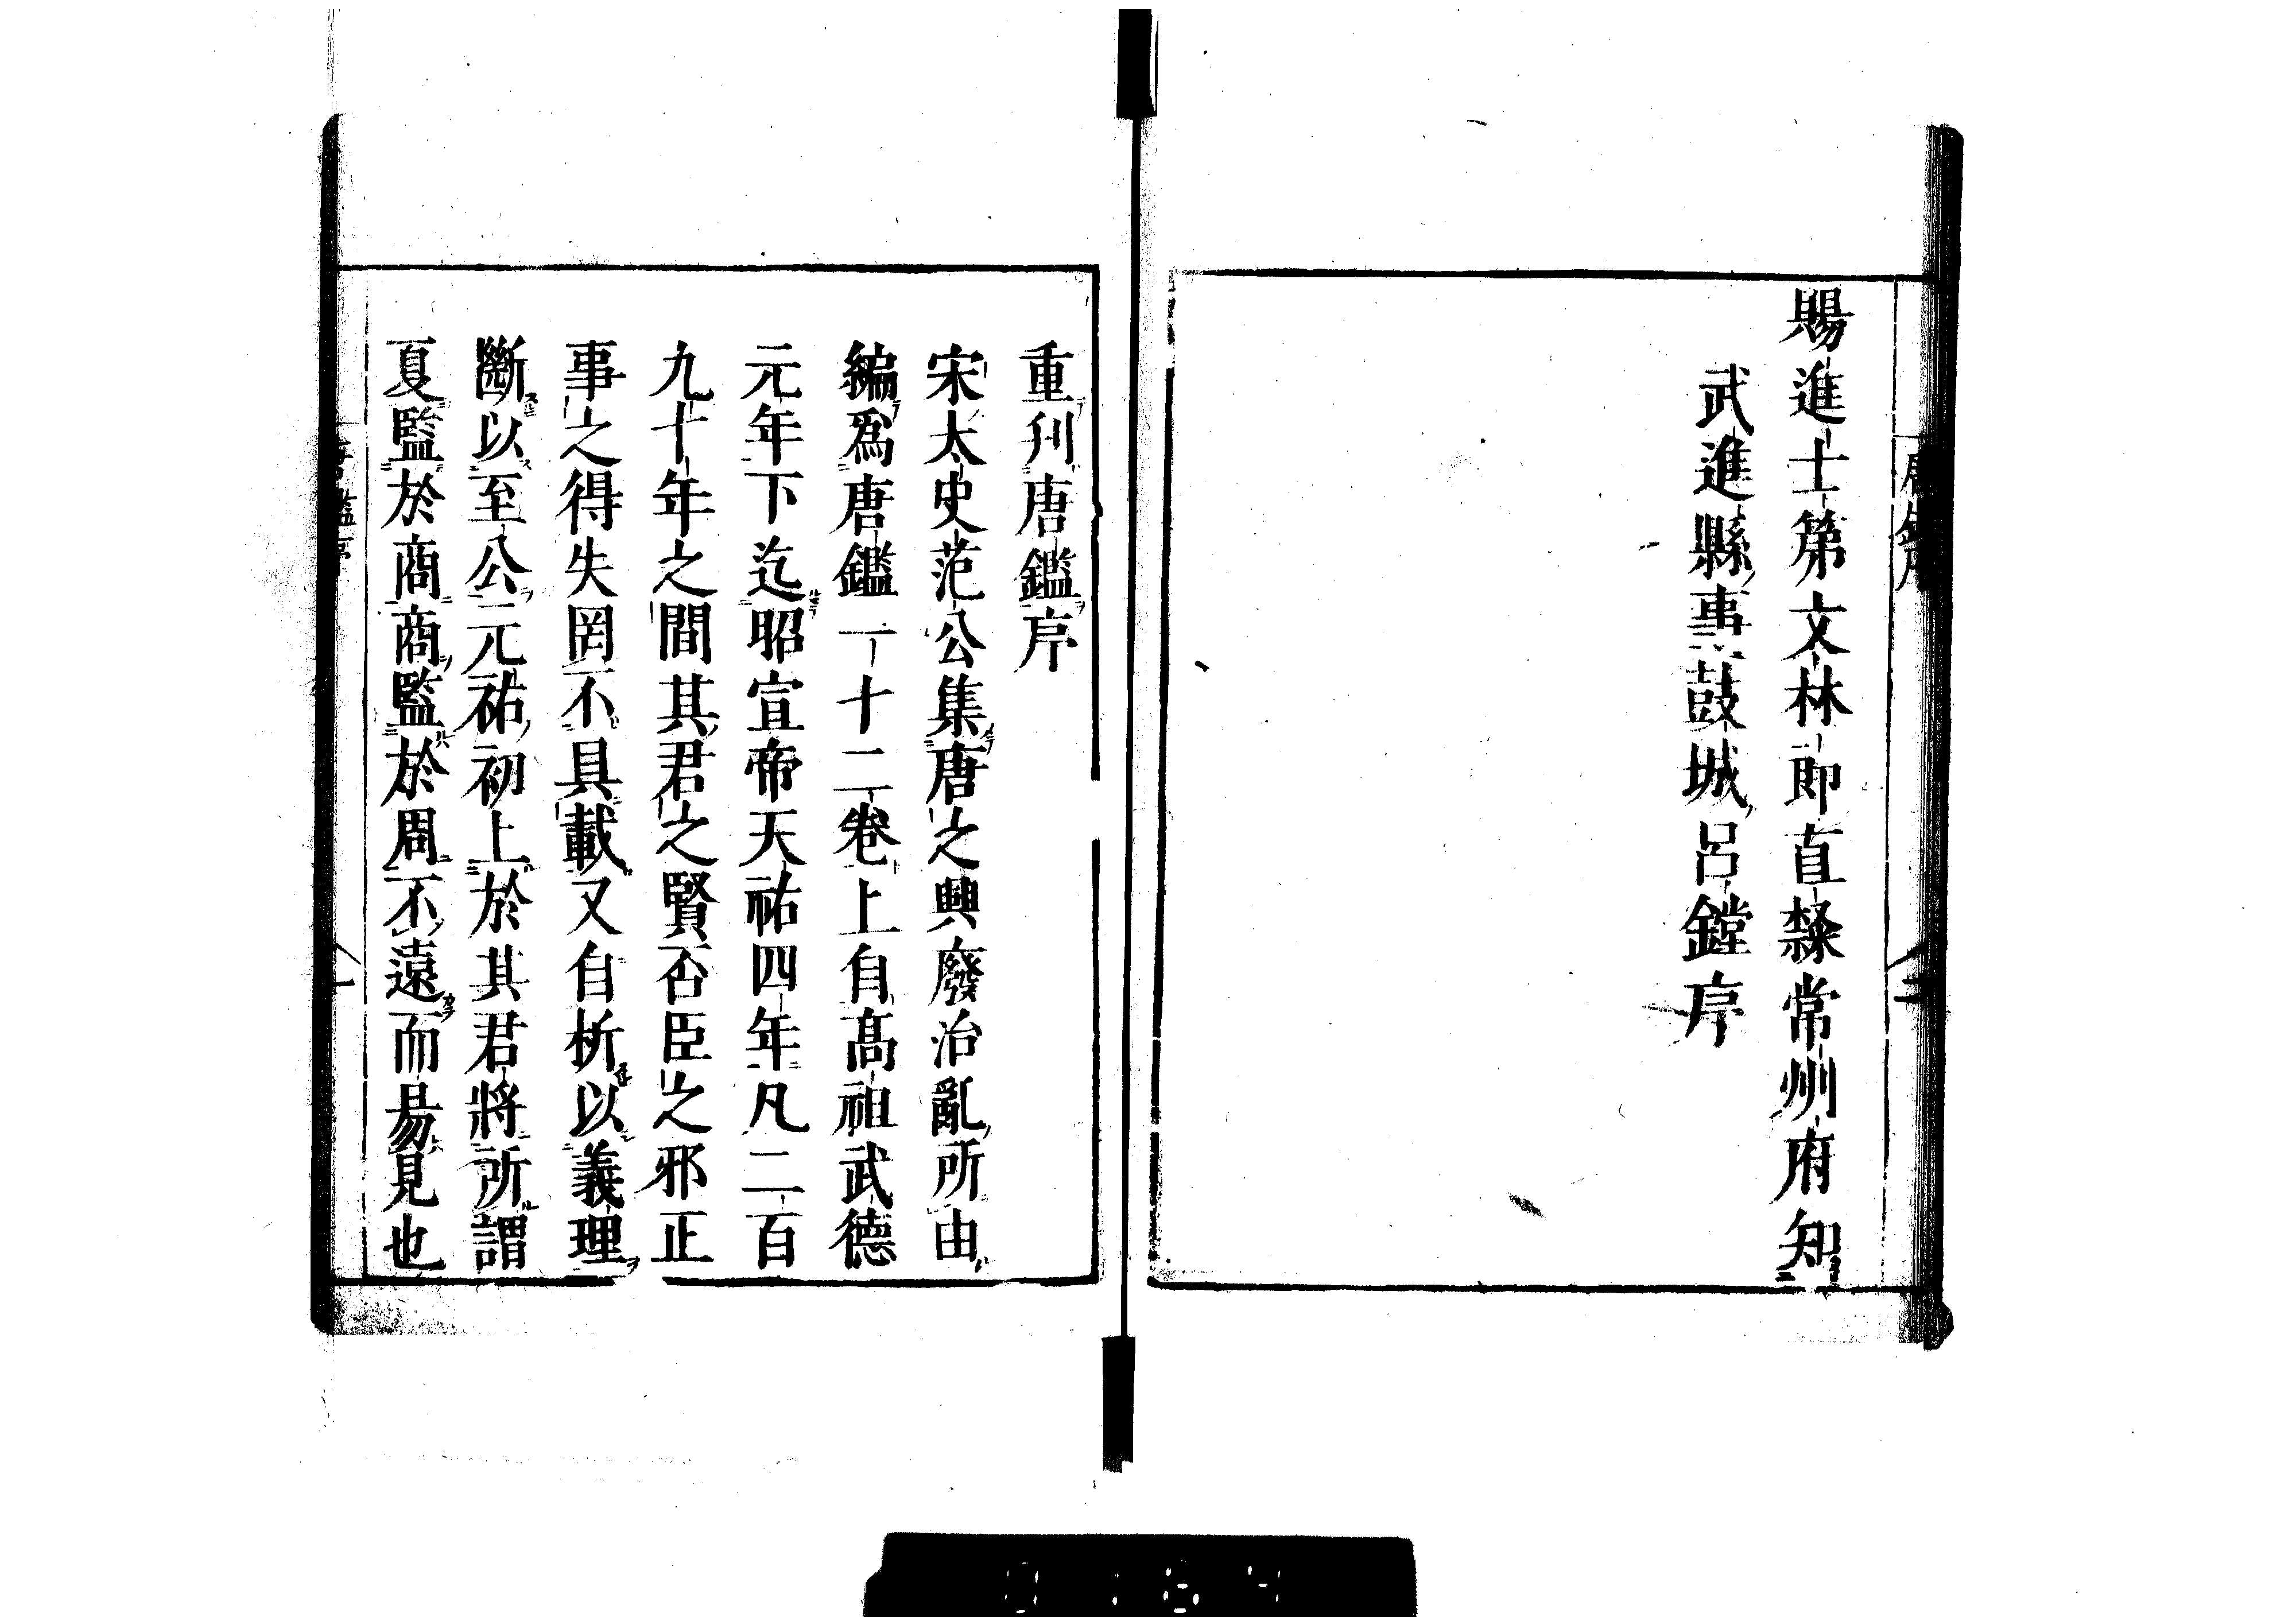 賜進士第文林郎直隸常州府知
武進縣事鼓城呂鏜序
重刋唐鑑序
宋太史范公集唐之興廢治亂所由
編爲唐鑑一十二卷上自高祖武德
元年下迄昭宣帝天祐四年凡二百
九十年之間其君之賢否臣之邪正
事之得失罔不具載又自析以義理
斷以至公元祐初上於其君將所謂
夏監於商商監於周不遠而易見也